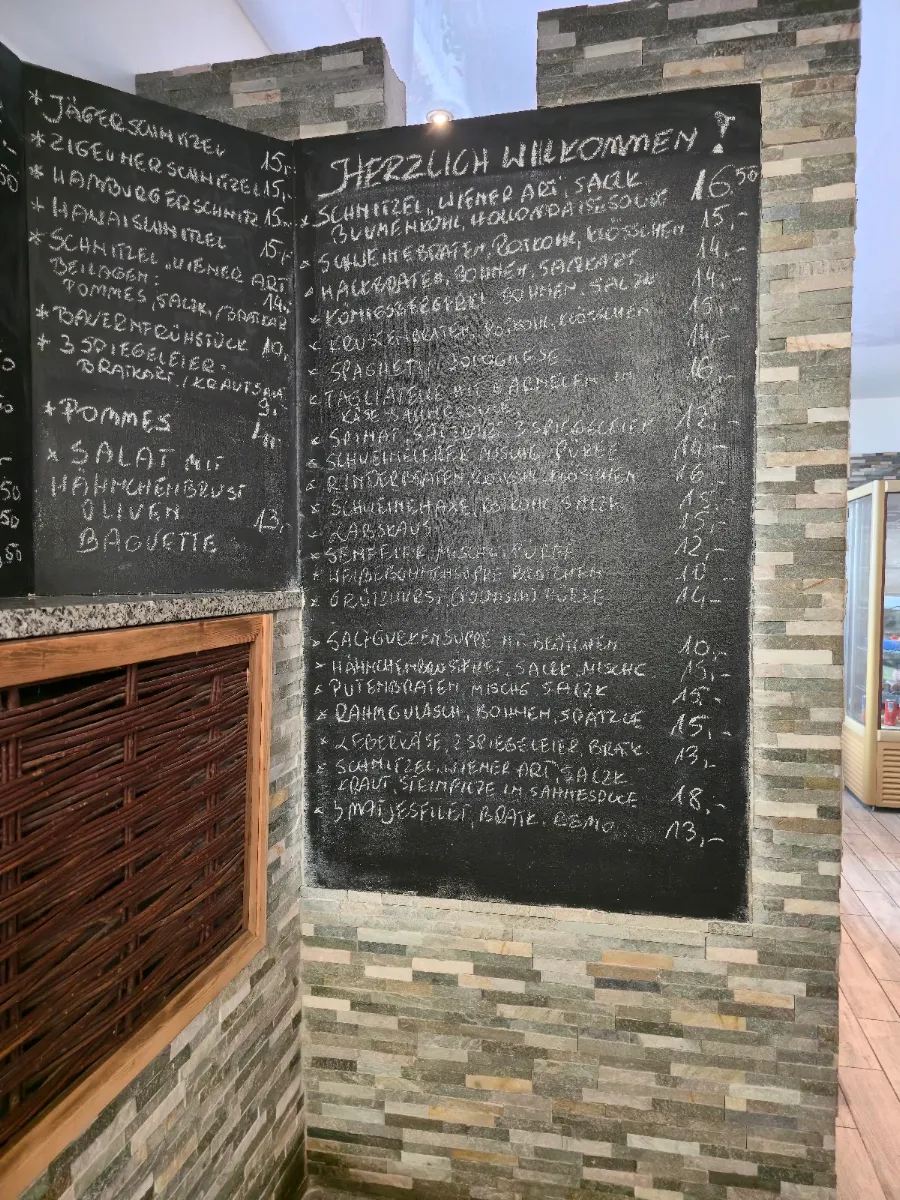 * JÄGERSCHNITZEL 15,-
* ZIGEUNERSCHNITZEL 15,-
* HAMBURGERSCHNITZ 15,-
* HAWAISCHNITZEL 15,-
* SCHNITZEL „WIENER ART
BEILAGEN: 14,-
POMMES, SALZK, / BRATKAR
* BAUERNFRÜHSTÜCK 10,-
* 3 SPIEGELEIER -
BRATKART. / KRAUTSAL
9,-
* POMMES 4,-
* SALAT MIT
HÄHNCHENBRUST
OLIVEN 13,-
BAGUETTE
HERZLICH WILLKOMMEN !
* SCHNITZEL „WIENER ART", SALZK 16,50
BLUMENKOHL, HOLLONDAISESOUCE
* SCHWEINEBRATEN, ROTKOHL, KLÖSSCHEN 15,-
* HACKBRATEN, BOHNEN, SALZKART 14,-
* KÖNIGSBERGERKL BOHNEN, SALZK 14,-
* KRUSTENBRATEN, ROTKOHL, KLÖSSCHEN 15,-
* SPAGHETTI BOLOGNESE 14,-
* TAGLIATELLE MIT GARNELEN IN 16,-
* SPINAT, SALZK 3 SPIEGELEIER 12,-
* SCHWEINELEBER, MISCHG, PÜREE 14,-
* RINDERBRATEN, ROTKOHL, KLÖSSCHEN 16,-
* SCHWEINEHAXE, ROTKOHL, SALZK 15,-
* LABSKAUS 15,-
* SENFEIER, MISCHG, PÜREE 12,-
* WEIßEBOHNENSUPPE BRÖTCHEN 10,-
* GRÜTZWURST, PÜREE 14,-
* SALZGURKENSUPPE MIT BRÖTCHEN 10,-
* HÄHNCHENBRUSTFILET, SALZK, MISCHG 15,-
* PUTENBRATEN, MISCHG, SALZK 15,-
* RAHMGULASCH, BOHNEN, SPÄTZLE 15,-
* LEBERKÄSE, 2 SPIEGELEIER, BRATK. 13,-
* SCHNITZEL „WIENER ART", SALZK
KRAUT, STEINPILZE IN SAHNESOUCE 18,-
* 3 MATJESFILET, BRATK. REMO 13,-